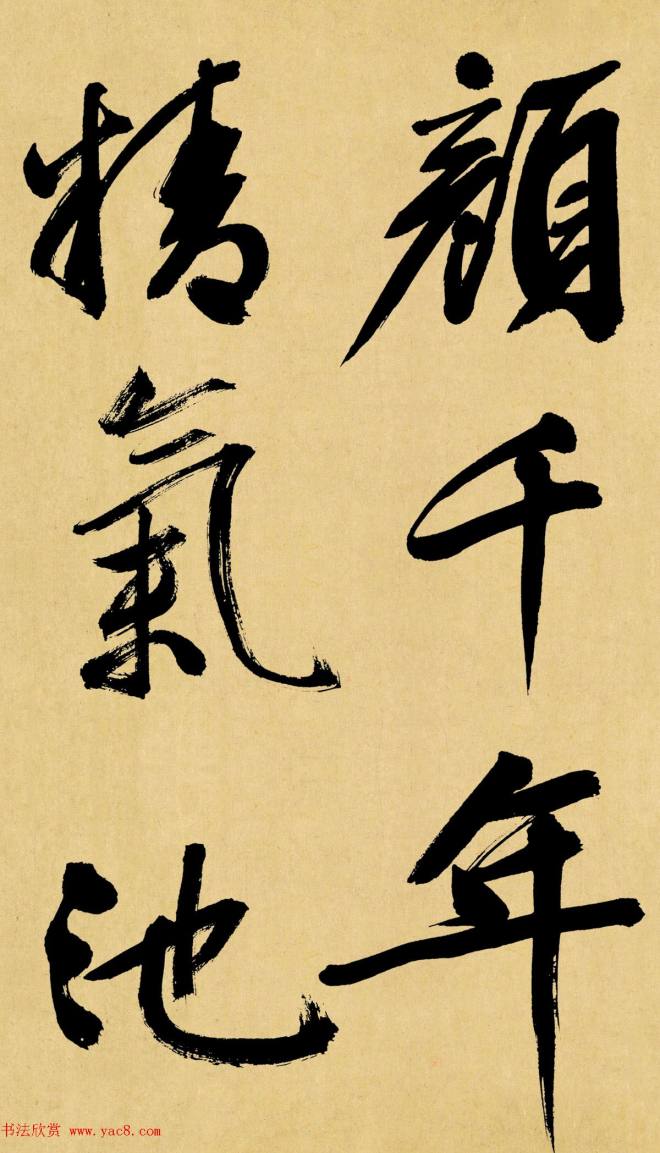 顏千年
精氣池
书法欣赏 www.yac8.com